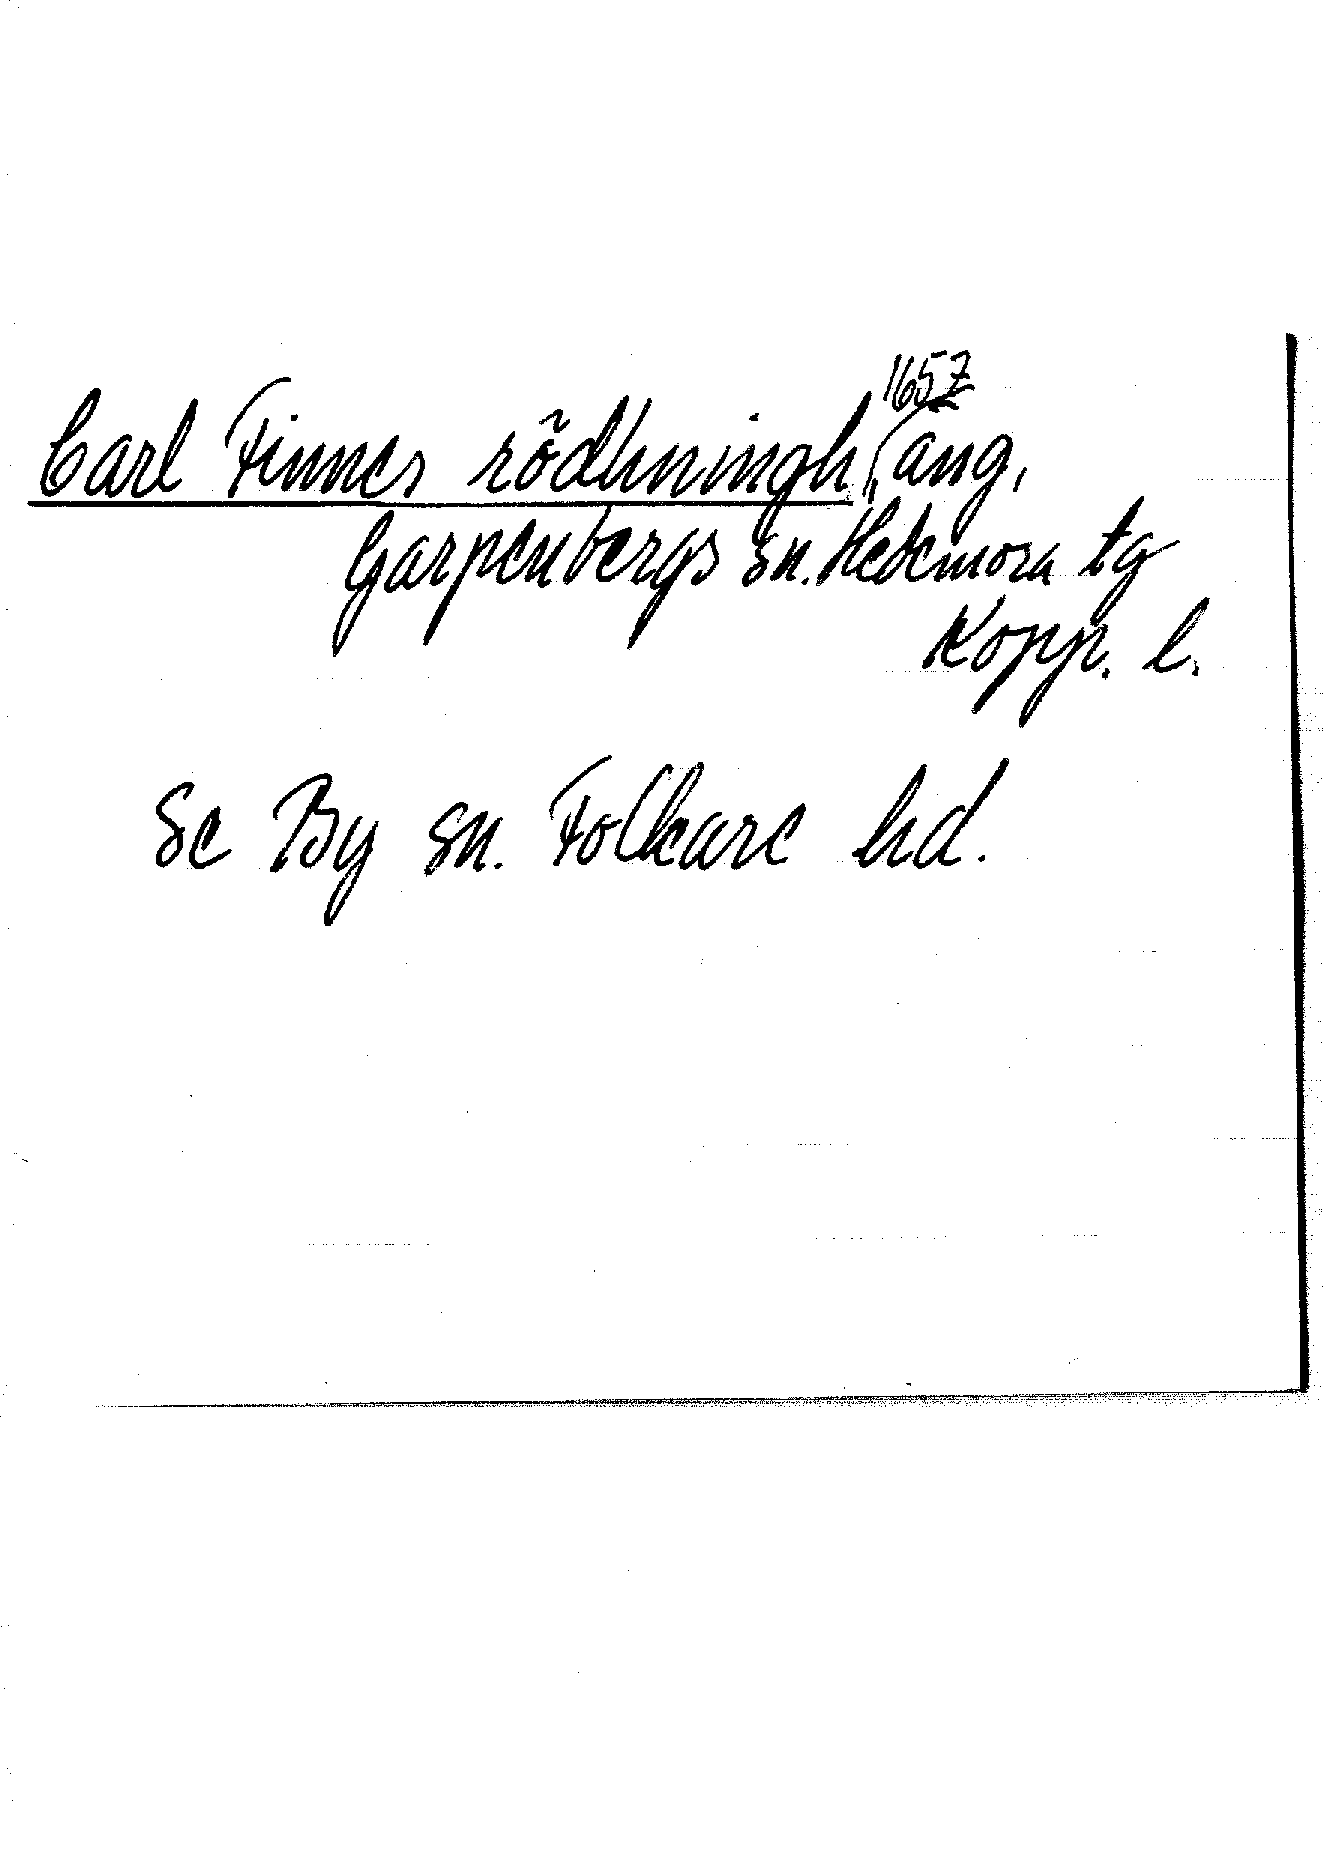 1657
Carl Finnes rödhningh, äng,
Garpenbergs sn. Hedemora tg
Kopp. l.
Se By sn. Folkare hd.